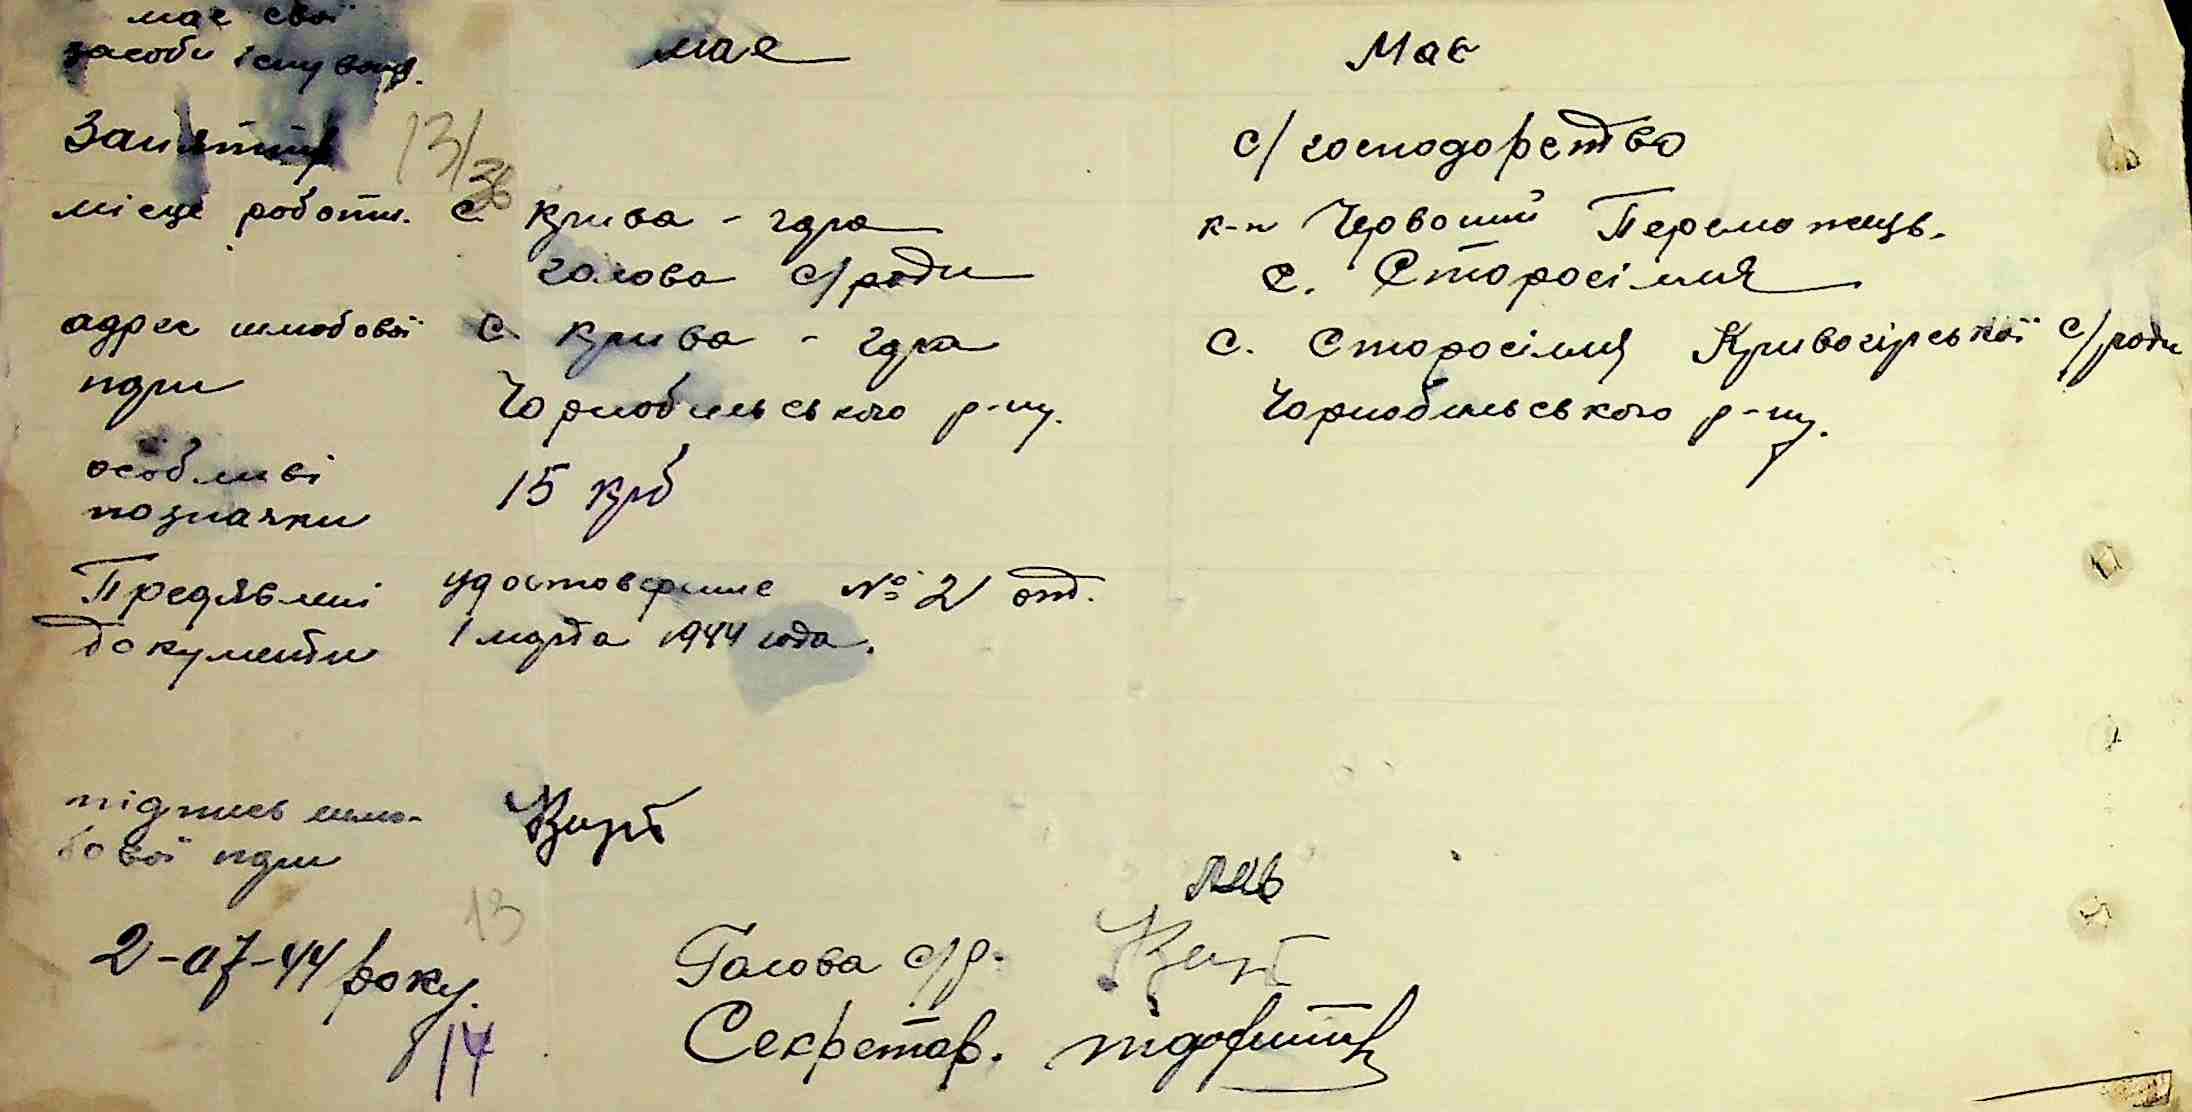 має свої
засоби існуванд. має Має
Заняття 13/36 с/господорство
місце роботи. с. Крива - гора к-п Червоний Переможець.
голова с/ради с. Старосілля
адрес шлюбової с. Крива - гора с. Старосілля Кривогірської с/ради
пари Чорнобильського р-ну. Чорнобильського р-ну.
особливі 15 крб
позначки
Предявлині удостоверение № 21 от.
документи 1 марта 1944 года.
підпись шлю-
бової пари
13
2-07-44 року. Голова с/р.
14 Секретар.